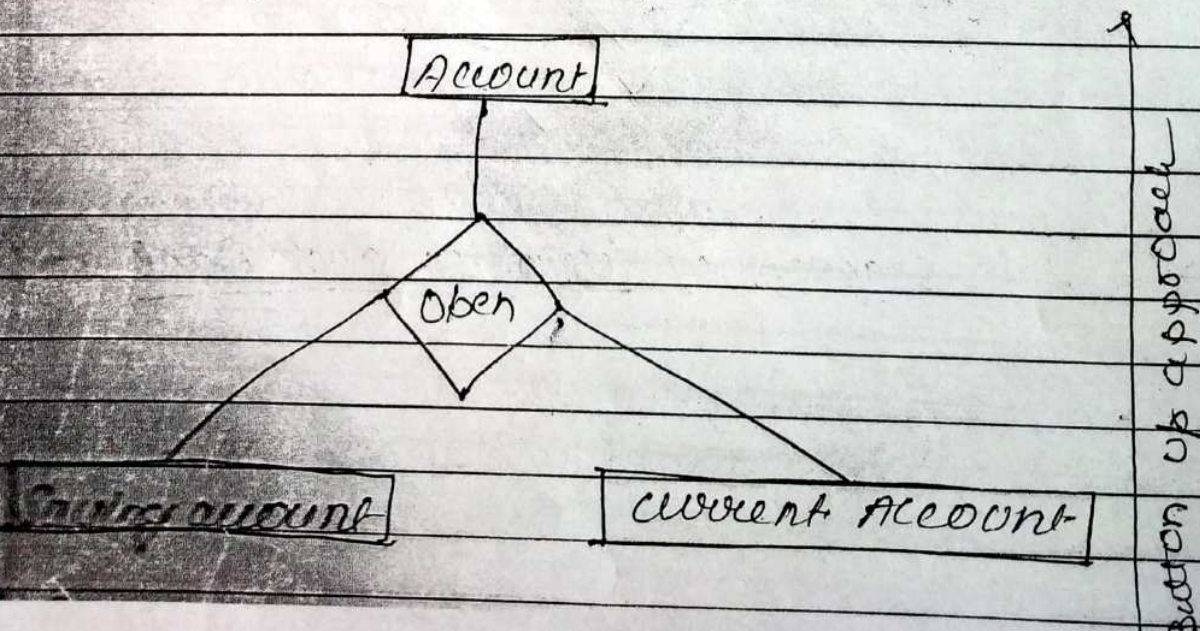 Account
Open
Saving account
Current Account
Button up approach